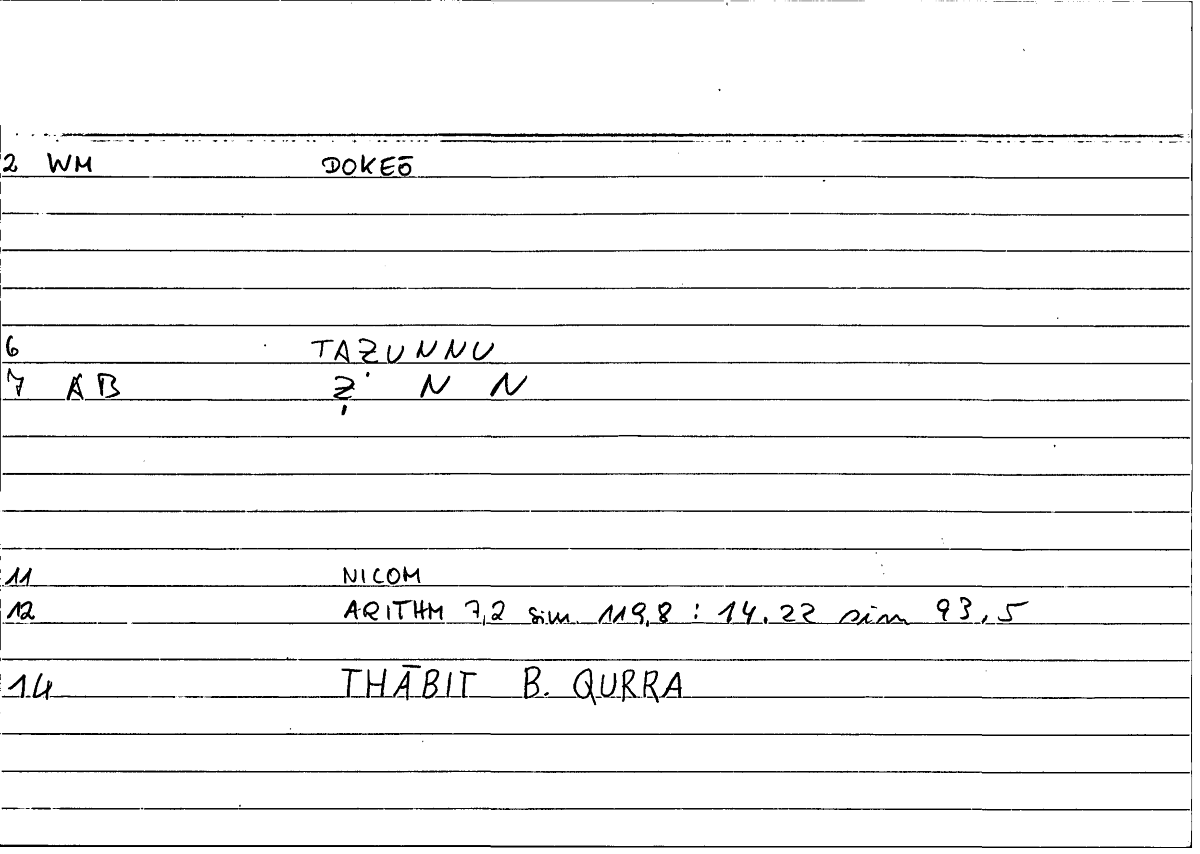 2 WM DOKEŌ
6 TAZUNNU
7 AB Ẓ N N
11 NICOM
12 ARITHM 7,2 sim 119,8 : 14.22 sim 93,5
14 THĀBIT B. QURRA